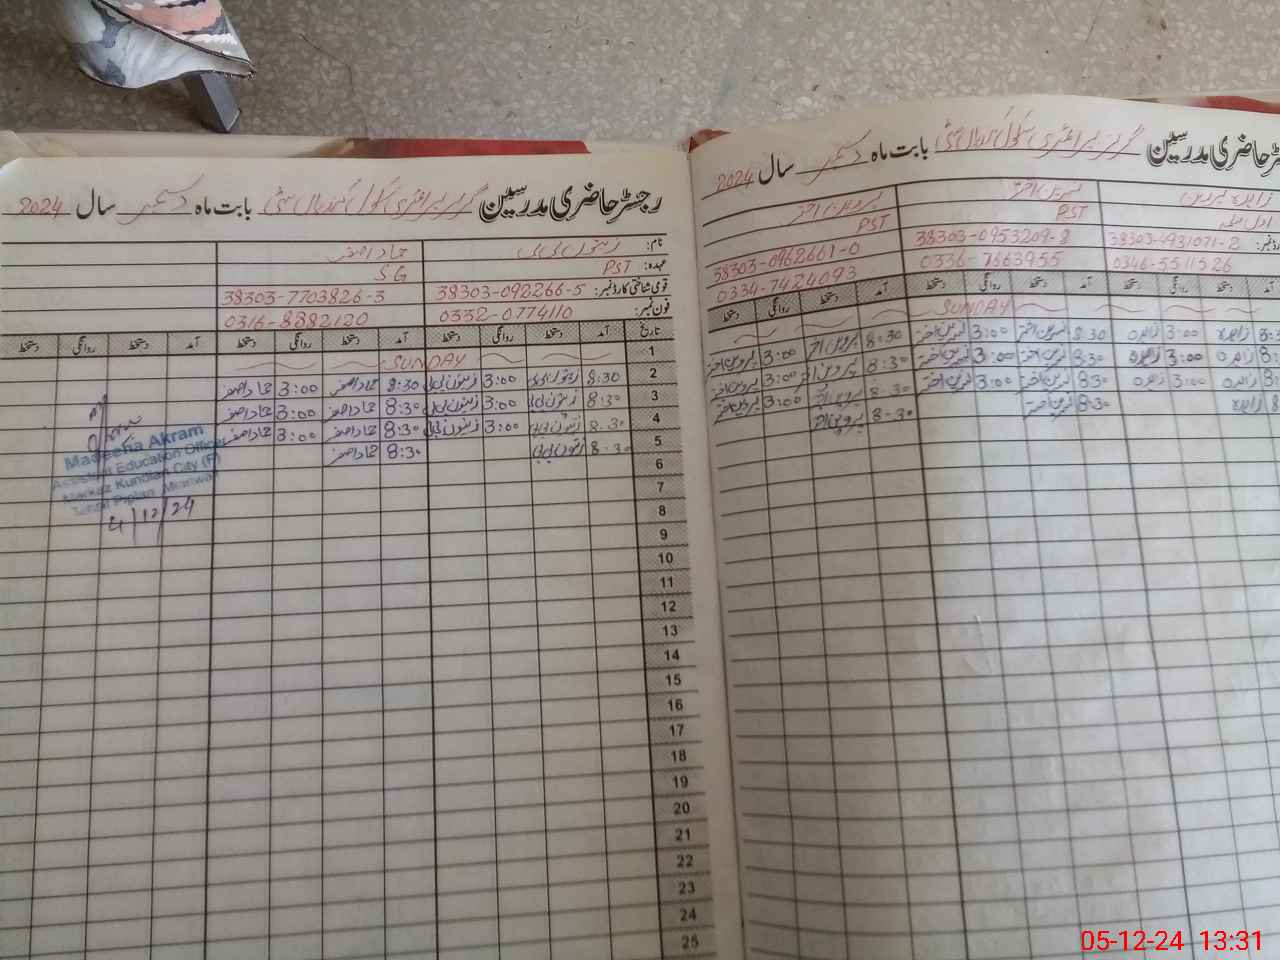 رجسٹر حاضری مدرسین گرلز پرائمری سکول بابت ماہ دسمبر سال 2024
نام: زیتون بی بی حماد اصغر
عہدہ: PST SG
قومی شناختی کارڈ نمبر: 38303-092266-5 38303-7703826-3
فون نمبر: 0332-0774110 0316-8882120
تاریخ آمد دستخط روانگی دستخط آمد دستخط روانگی دستخط آمد دستخط روانگی دستخط
1 SUNDAY
2 8:30 زیتون بی بی 3:00 زیتون بی بی 8:30 حماد اصغر 3:00 حماد اصغر
3 8:30 زیتون بی بی 3:00 زیتون بی بی 8:30 حماد اصغر 3:00 حماد اصغر
4 8:30 زیتون بی بی 3:00 زیتون بی بی 8:30 حماد اصغر 3:00 حماد اصغر
5 8:30 زیتون بی بی 8:30 حماد اصغر
6
7
8
9
10
11
12
13
14
15
16
17
18
19
20
21
22
23
24
25
Madeeha Akram
Assistant Education Officer
Markaz Kundian City (F)
Tehsil Piplan, Mianwali
4/12/24
رجسٹر حاضری مدرسین گرلز پرائمری سکول بابت ماہ دسمبر سال 2024
زاہدہ پروین نسرین اختر پروین اختر
PST PST
38303-4931071-2 38303-0953209-8 38303-0962661-0
0346-5511526 0336-7663955 0334-7424093
آمد دستخط روانگی دستخط آمد دستخط روانگی دستخط آمد دستخط روانگی دستخط
SUNDAY
زاہدہ 3:00 زاہدہ 8:30 نسرین اختر 3:00 نسرین اختر 8:30 پروین اختر 3:00 پروین اختر
زاہدہ 3:00 زاہدہ 8:30 نسرین اختر 3:00 نسرین اختر 8:30 پروین اختر 3:00 پروین اختر
زاہدہ 3:00 زاہدہ 8:30 نسرین اختر 3:00 نسرین اختر 8:30 پروین اختر 3:00 پروین اختر
زاہدہ 8:30 نسرین اختر 8:30 پروین اختر
05-12-24 13:31